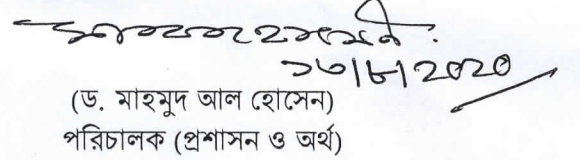 ১৩/৮/2020
(ড. মাহমুদ আল হোসেন)
পরিচালক (প্রশাসন ও অর্থ)